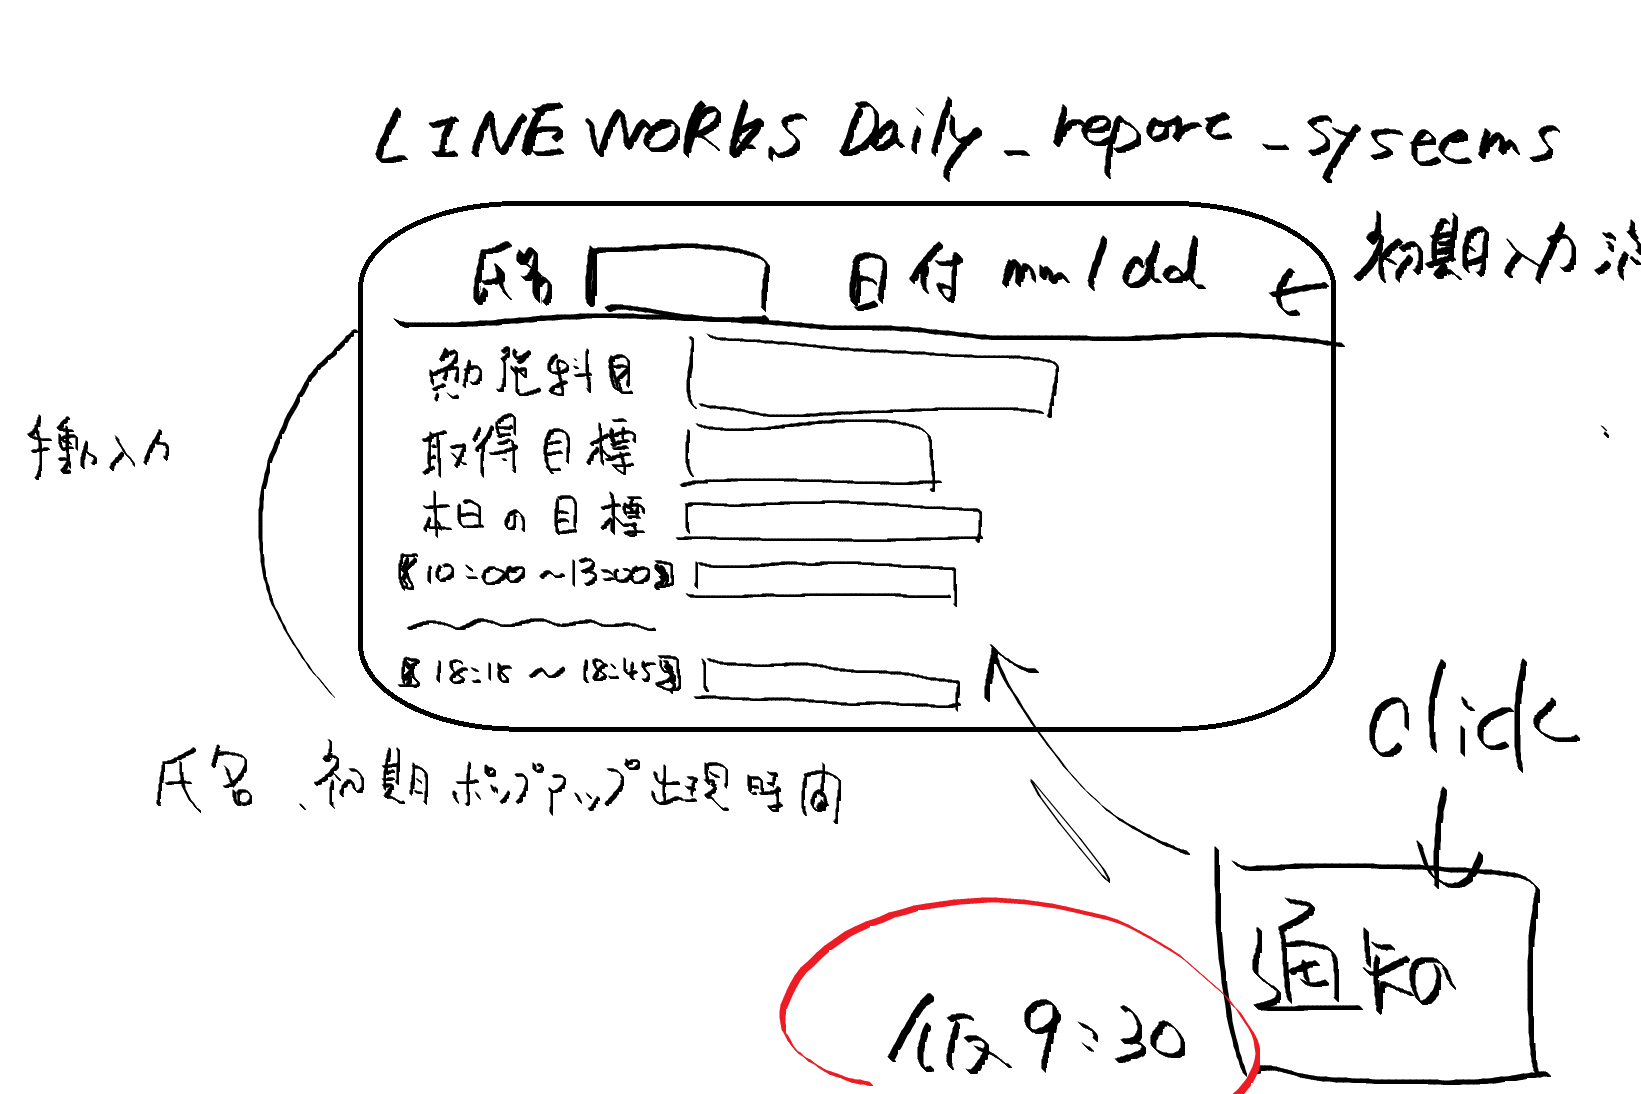 LINE WORKS Daily_report_systeems
氏名 日付 mm/dd ← 初期入力済
勉強科目
取得目標
手動入力
本日の目標
【10:00~13:00】
【18:15~18:45】
click
氏名、初期ポップアップ出現時間
通知
仮9:30